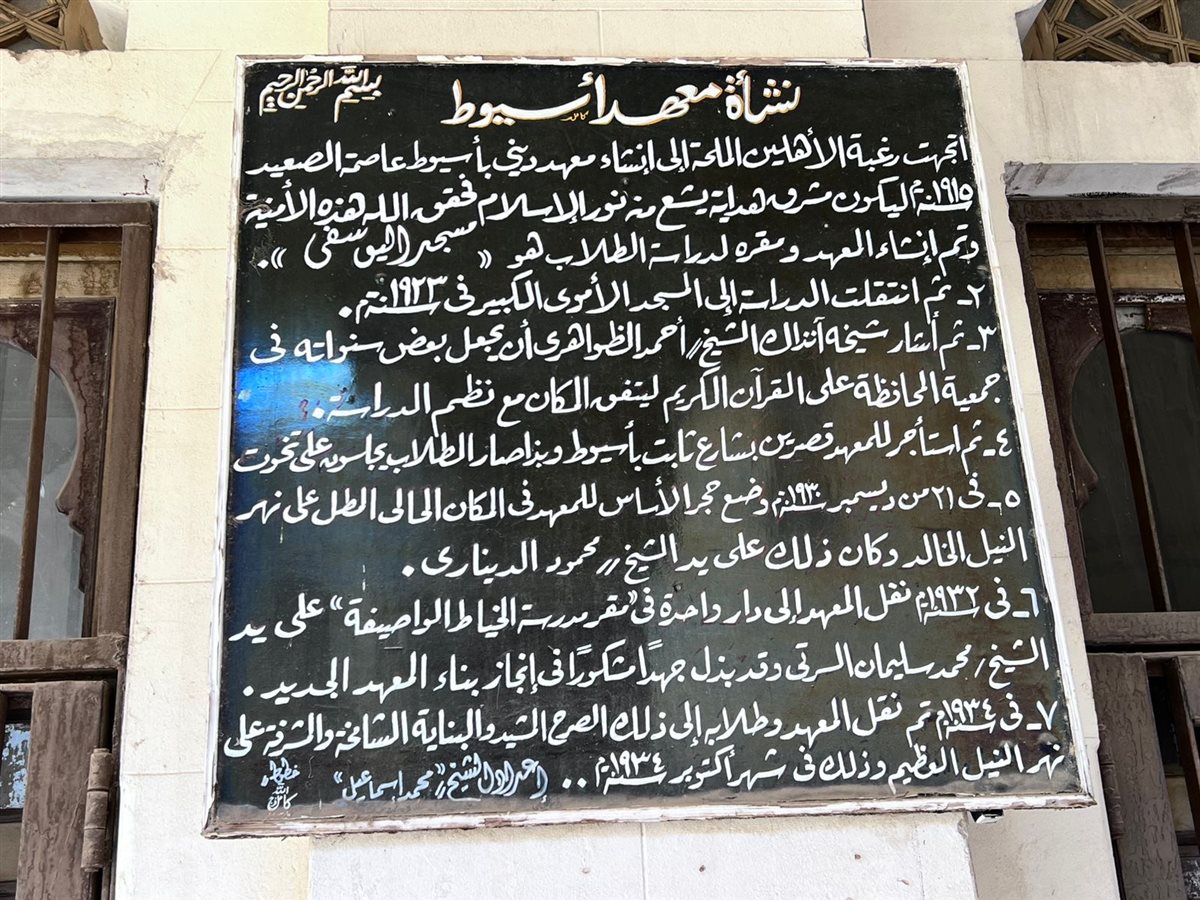 بسم الله الرحمن الرحيم
نشأة معهد أسيوط
اتجهت رغبة الأهلين الملحة إلى إنشاء معهد ديني بأسيوط عاصمة الصعيد
سنة ١٩١٥م ليكون مشرق هداية يشع منه نور الإسلام فحقق الله هذه الأمنية
وتم إنشاء المعهد ومقره لدراسة الطلاب هو « مسجد اليوسفى » .
٢ـ ثم انتقلت الدراسة إلى المسجد الأموى الكبير فى سنة ١٩٢٣م .
٣ـ ثم أشار شيخه آنذاك الشيخ // أحمد الظواهرى أن يجعل بعض سنواته فى
جمعية المحافظة على القرآن الكريم ليتفق المكان مع نظم الدراسة .
٤ـ ثم استأجر للمعهد قصرين بشارع ثابت بأسيوط وبذا صار الطلاب يجلسون على تخوت
٥ـ فى ٢١ من ديسمبر سنة ١٩٣٠م وضع حجر الأساس للمعهد فى المكان الحالى المطل على نهر
النيل الخالد وكان ذلك على يد الشيخ // محمود الدينارى .
٦ـ فى سنة ١٩٣٢م نقل المعهد إلى دار واحدة فى "مقر مدرسة الخياط الواصيفة" على يد
الشيخ / محمد سليمان السرتى وقد بذل جهدًا مشكورًا فى إنجاز بناء المعهد الجديد .
٧ـ فى سنة ١٩٣٤م تم نقل المعهد وطلابه إلى ذلك الصرح المشيد والبناية الشامخة والمشرفة على
نهر النيل العظيم وذلك فى شهر أكتوبر سنة ١٩٣٤م ..
إعداد الشيخ // "محمد إسماعيل"
خطوط